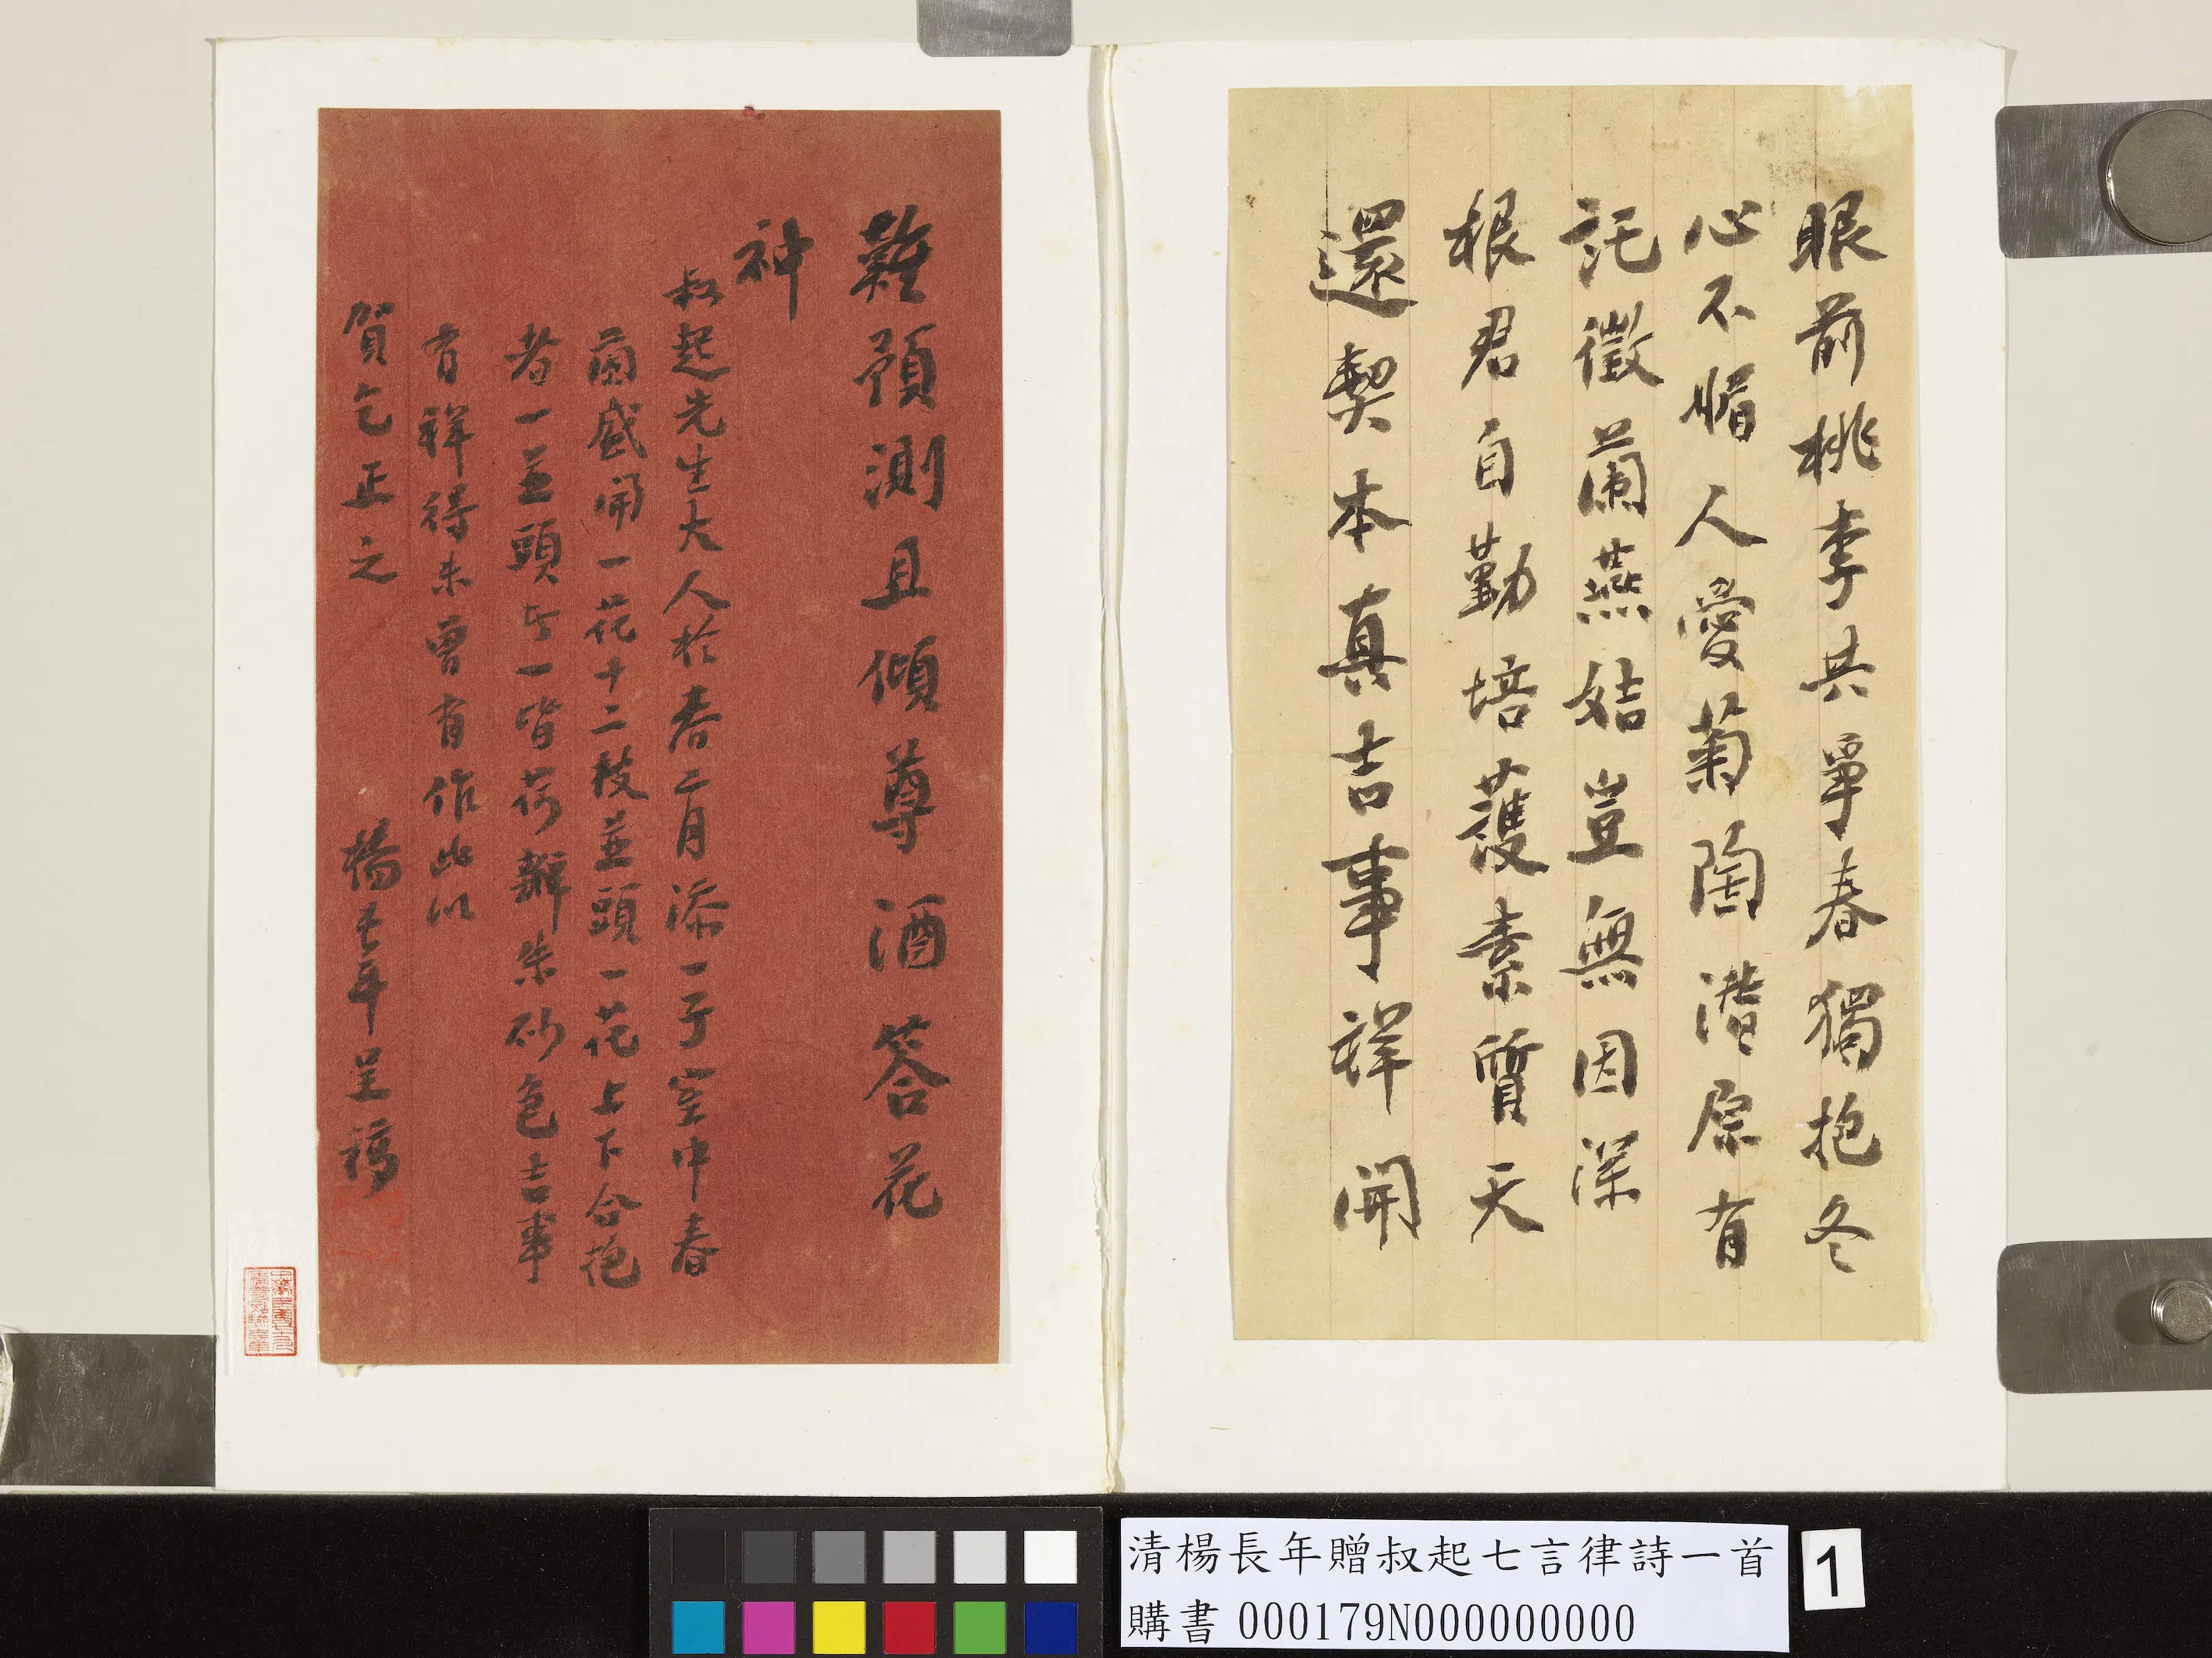 眼前桃李共爭春獨抱冬
心不媚人愛菊陶潛原有
託徵蘭燕姞豈無因深
根君自勤培護素質天
還契本真吉事祥開
難預測且傾尊酒答花
神
叔起先生大人於春二月添一子室中春
蘭盛開一花十二枝並頭一花上下合抱
者一並頭者一皆荷瓣朱砂色吉事
有祥得未曾有作此以
賀乞正之
楊長年呈稿
清楊長年贈叔起七言律詩一首
購書 000179N000000000
1